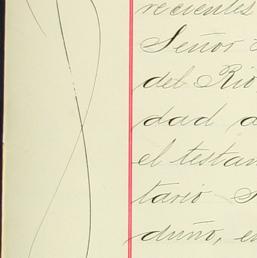 recientes
Señor
del Rio
dad a
el testan
tario S
duño, en